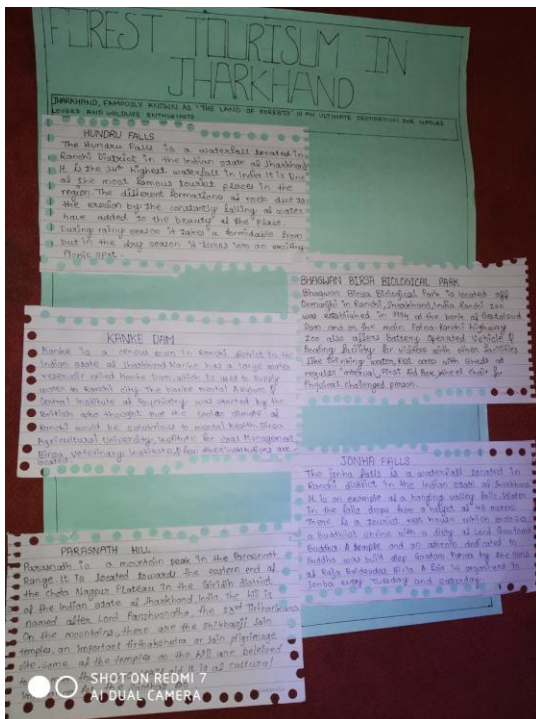 FOREST TOURISUM IN
JHARKHAND
JHARKHAND, FAMOUSLY KNOWN AS 'THE LAND OF FORESTS' IS AN ULTIMATE FOR NATURE
LOVERS AND WILDLIFE
HUNDRU FALLS
The Hundru Falls is a waterfall located in
Ranchi District in the Indian state of Jharkhand
It is the 34th highest waterfall in India It is One
of the most famous tourist places in the
region. The different formations of rock due to
the erosion by the constantly falling of water
have added to the beauty of the place.
During rainy season it takes a formidable from
but in the dry season it turns into an exciting
Picnic spot.
BHAGWAN BIRSA BIOLOGICAL PARK
Bhagwan Birsa Biological Park is located off
in Ranchi, Jharkhand, India Ranchi Zoo
was established in at the bank of Getalsud
Dam and on the main Ranchi highway
Zoo also offers Battery Operated Vehicle &
Boating facility for visitors with other
like Drinking water, Rest area with shed at
regular interval, First Aid Box, Wheel Chair for
Physical challenged person.
KANKE DAM
Kanke is a census town in Ranchi district in the
Indian state of Jharkhand Kanke has a large water
reservoir called Kanke Dam, which is used to supply
water to Ranchi city. The Kanke Mental Asylum &
Central Institute of Psychiatry was started by the
British who thought that the cooler climate of
Ranchi would be salubrious to mental health. Birsa
Agricultural University, Institute for Coal Management
Birsa Veterinary Institute & few other institutions are
located
JONHA FALLS
The jonha falls is a waterfall located in
Ranchi district in the Indian state of Jharkhand
It is an example of a hanging valley falls. Water
in the falls drops from a height of 43 metres
There is a tourist rest house which
a Buddhist shrine with a diety of Lord Gautama
Buddha A temple and an ashram dedicated to
Buddha was built by the sons
of Raja Birla A fair is organised in
Jonha every Tuesday and Saturday.
PARASNATH HILL
Parasnath is a mountain peak in the Parasnath
Range. It is located towards the eastern end of
the Chota Nagpur Plateau in the Giridih district
of the Indian state of Jharkhand, India The hill is
named after Lord Parshvanatha, the 23rd Tirthankara
On the mountains, there are the Shikharji Jain
temples, an important tirthakshetra or Jain pilgrimage
site. Some of the temples on the hill are believed
to old It is of cultural
SHOT ON REDMI 7
AI DUAL CAMERA